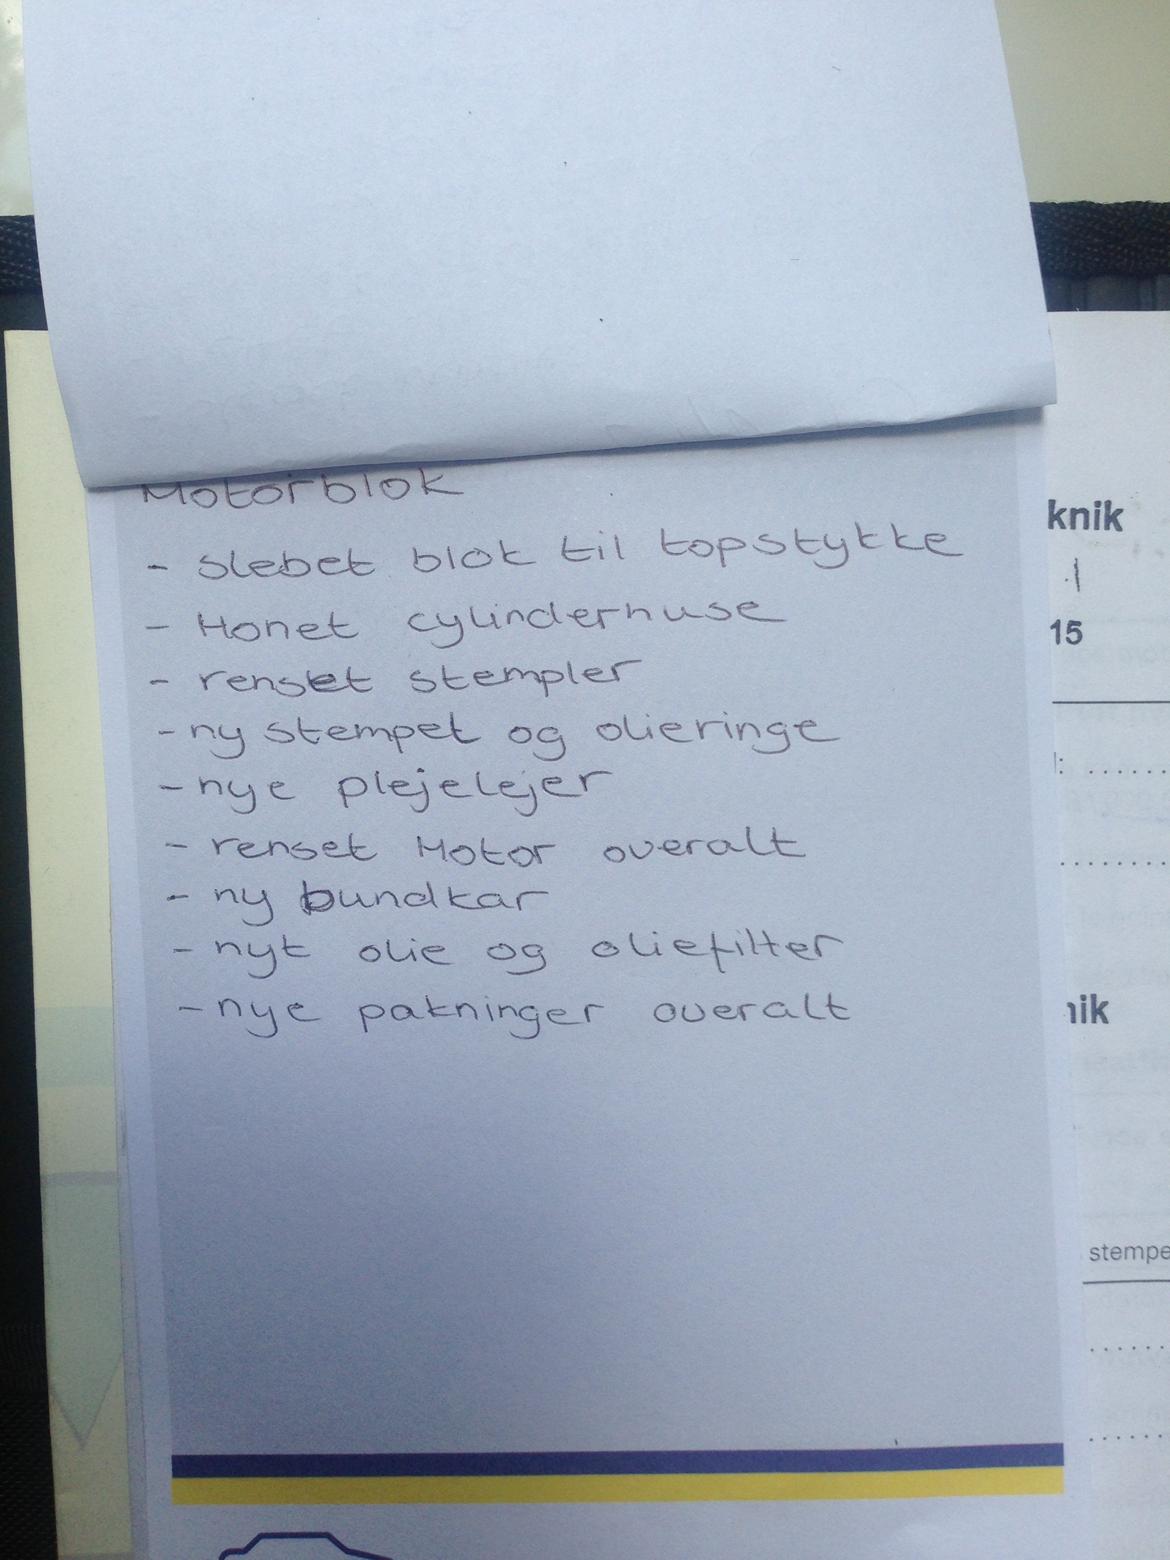 Motorblok
- slebet blok til topstykke
- Honet cylinderhuse
- renset stempler
- ny stempel og olieringe
- nye plejelejer
- renset Motor overalt
- ny bundkar
- nyt olie og oliefilter
- nye pakninger overalt
knik
15
nik
stempe